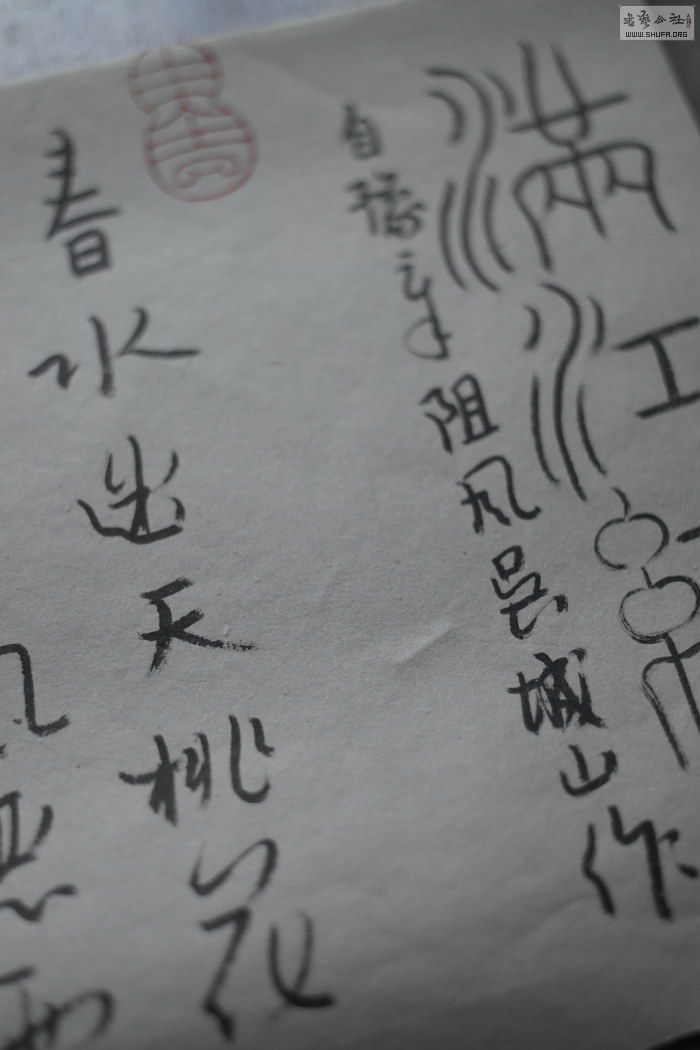 滿江紅
自豫章阻风吴城山作
春水迷天桃花
書藝公社
WWW.SHUFA.ORG